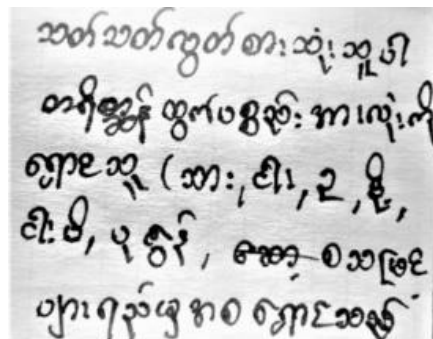 သတ်သတ်လွတ်စားသုံးသူပါ
တရိစ္ဆာန် ထွက်ပစ္စည်း အားလုံးကို
ရှောင်သူ (သား, ငါး, ဥ, နို့,
ငါးပိ, ပုစွန်, ဆော့ စသဖြင့်
ပျားရည်မှအစ ရှောင်သည်